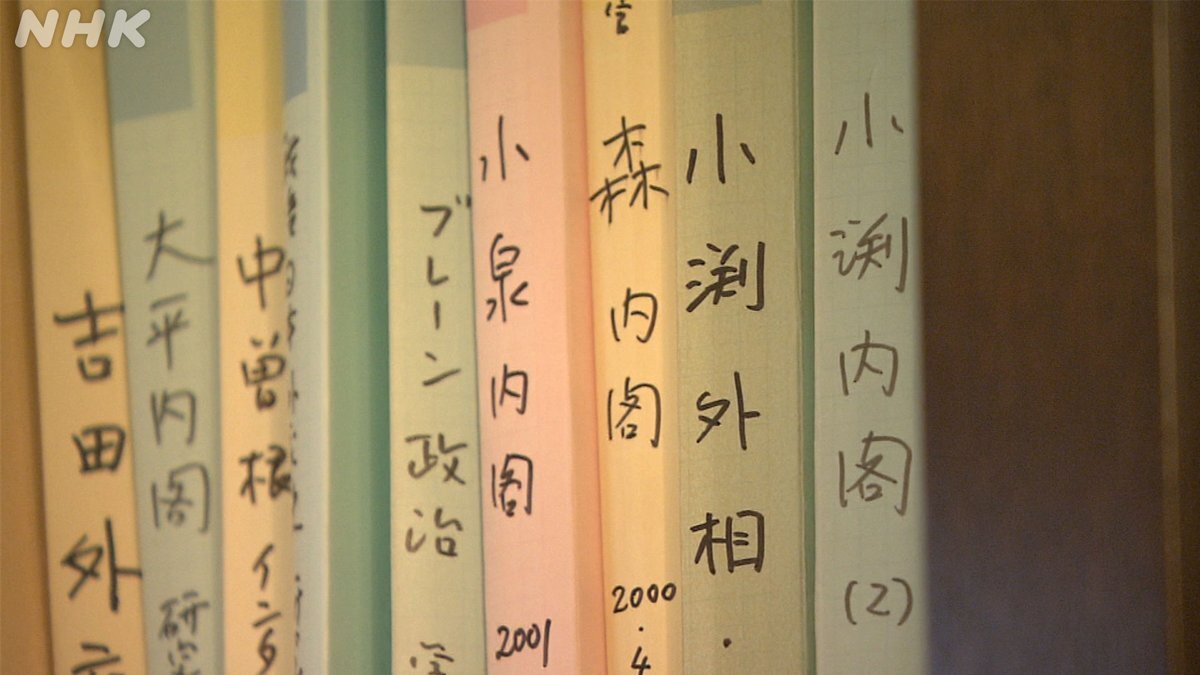 NHK
吉田外
大平内閣 研
中曽根 インタ
ブレーン政治
小泉内閣 2001
森内閣 2000.4
小渕外相・
小渕内閣(2)